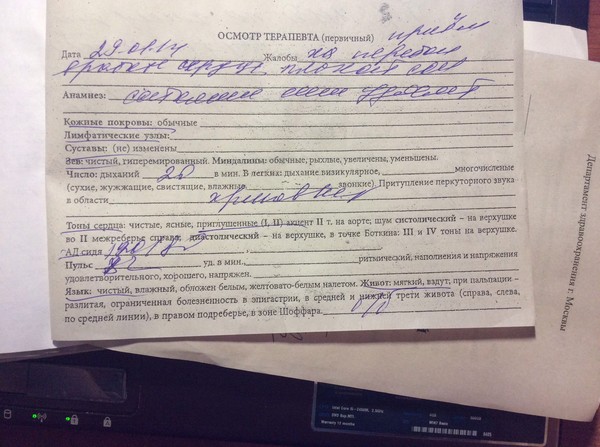 ОСМОТР ТЕРАПЕВТА (первичный) приём
Дата 29.01.14 Жалобы на перебои
в работе сердца, плохой сон
Анамнез:
Кожные покровы: обычные
Лимфатические узлы:
Суставы: (не) изменены
Зев: чистый, гиперемированный. Миндалины: обычные, рыхлые, увеличены, уменьшены.
Число: дыханий 20 в мин. В легких: дыхание везикулярное, многочисленные
(сухие, жужжащие, свистящие, влажные звонкие). Притупление перкуторного звука
в области
Тоны сердца: чистые, ясные, приглушенные (I, II) акцент II т. на аорте; шум систолический – на верхушке
во II межреберье справа; диастолический – на верхушке, в точке Боткина: III и IV тоны на верхушке.
АД сидя 120/82
Пульс: 82 уд. в мин. ритмический, наполнения и напряжения
удовлетворительного, хорошего, напряжен.
Язык: чистый, влажный, обложен белым, желтовато-белым налетом. Живот: мягкий, вздут, при пальпации –
разлитая, ограниченная болезненность в эпигастрии, в средней и нижней трети живота (справа, слева,
по средней линии), в правом подреберье, в зоне Шоффара. б/б
Департамент здравоохранения г. Москвы